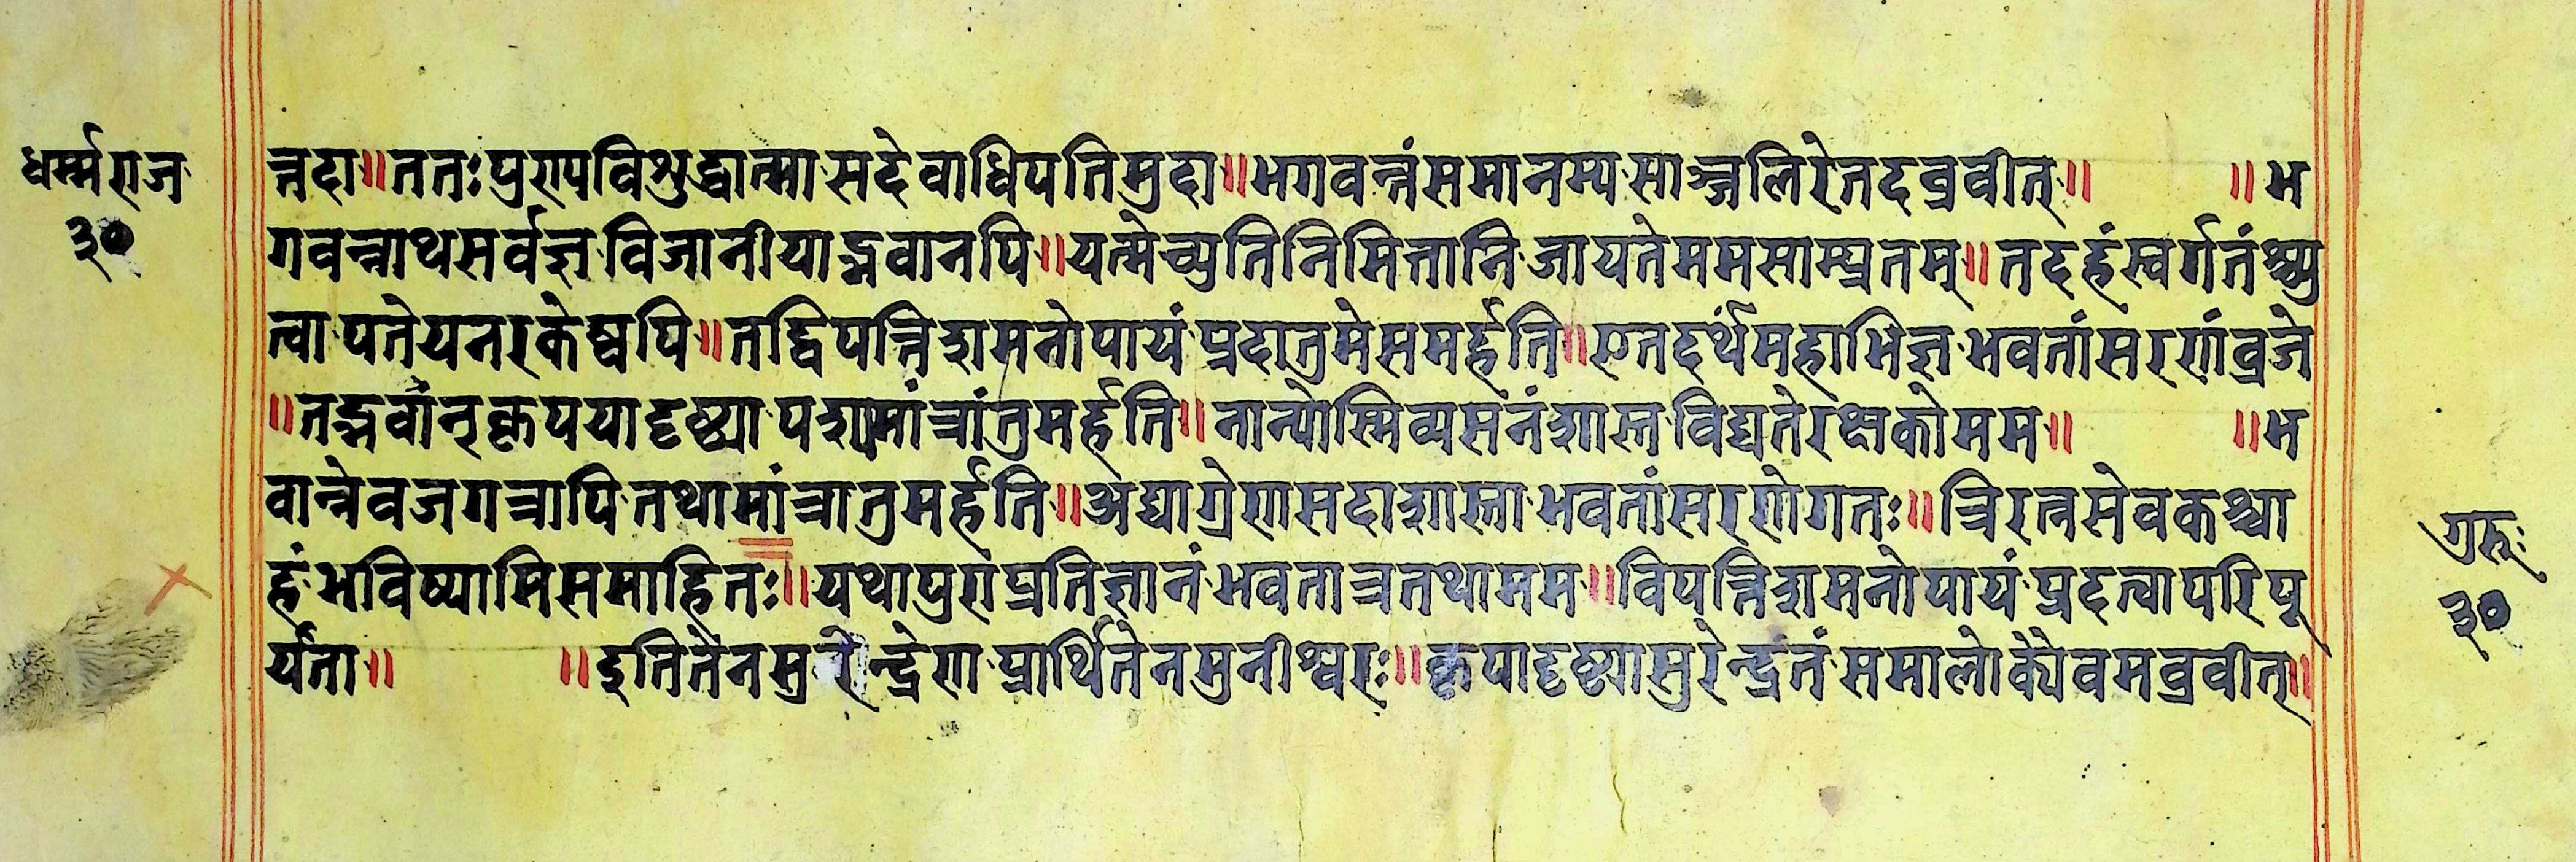 धर्म्मराज
३०
न्नदा॥ततःपुरापविशुद्धात्मासदेवाधिपतिमुदा॥भगवन्तंसमानम्यसाञ्जलिरेतदव्रवीत्॥ ॥भ
गवन्नाथसर्वज्ञविजानीयाद्भवानपि॥यत्मेच्युतिनिमित्तानिजायतेममसाम्प्रतम्॥तदहंस्वर्गतंश्च्यु
त्वापतेयनरकेष्वपि॥तद्विपत्तिशमनोपायंप्रदातुमेसमर्हति॥एतदर्थंमहाभिज्ञभवतांसरणंव्रजे
॥तद्भवान्कृपयादृष्ट्यापश्यमांत्रांतुमर्हति॥नान्योस्मिव्यसनंशास्तविद्यतेरक्षकोमम॥ ॥भ
वान्नेवजगत्त्रापितथामांत्रातुमर्हति॥अद्याग्रेणसदाशास्ताभवतांसरणेगतः॥त्रिरत्नसेवकश्चा
हंभविष्यामिसमाहितः॥यथापुराप्रतिज्ञानंभवतात्रतथामम॥विपत्तिशमनोपायंप्रदत्वापरिपू
र्यता॥ ॥इतितेनसुरेन्द्रेणप्रार्थितेनमुनीश्वरः॥कृपादृष्ट्यासुरेन्द्रंतंसमालोक्यैवमव्रवीत्॥
गुरूः
३०